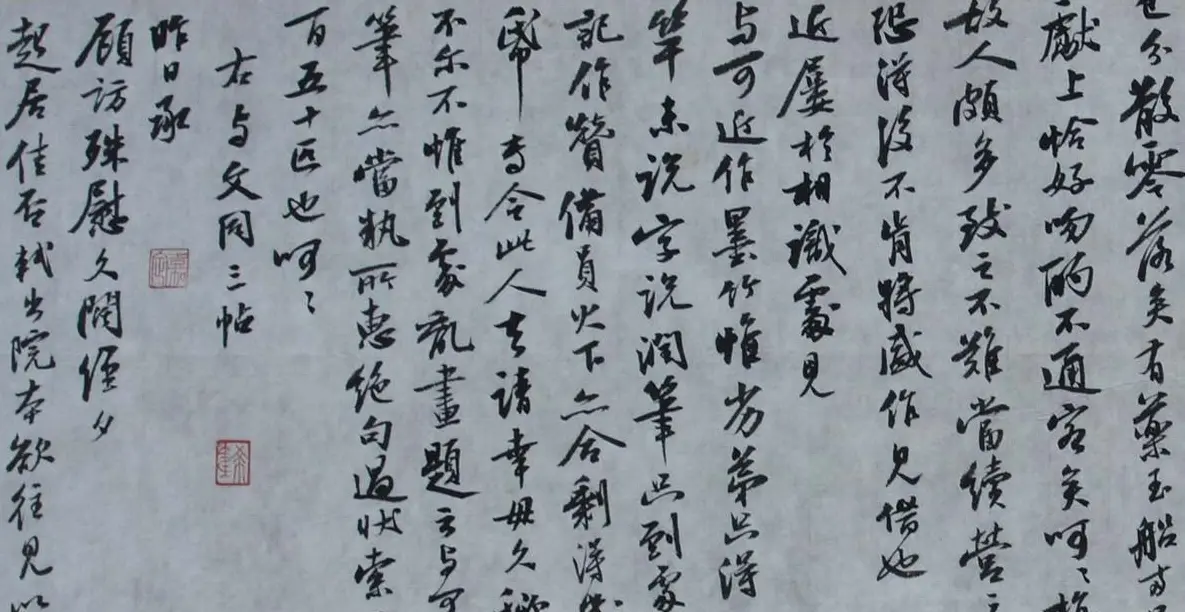 分散零落矣有药玉船寺
獻上恰好吻酌不通客矣呵〻
故人頗多致之不難當續營之
恐得後不肯將盛作見借也
近屢於相識處見
与可近作墨竹惟劣弟只得
竿未說字說潤筆只到處
記作贊備員火下亦合剩得
幣专令此人去請幸毋久秘
不尔不惟到處亂畫題云与可
筆亦當執所惠絕句過狀索
百五十匹也呵〻
右与文同三帖
昨日承
顧訪殊慰久闊經夕
起居佳否軾出院本欲往見